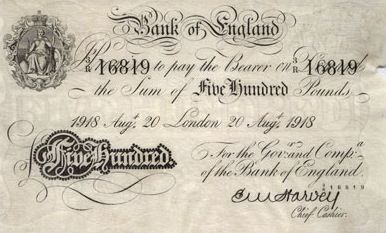 Bank of England
3/R 16819 to pay the Bearer on 3/R 16819
the Sum of Five Hundred Pounds.
1918 Augt. 20 London 20 Augt. 1918
For the Govr. and Compa.
Five Hundred.
of the Bank of England.
16819
E M Harvey
Chief Cashier.